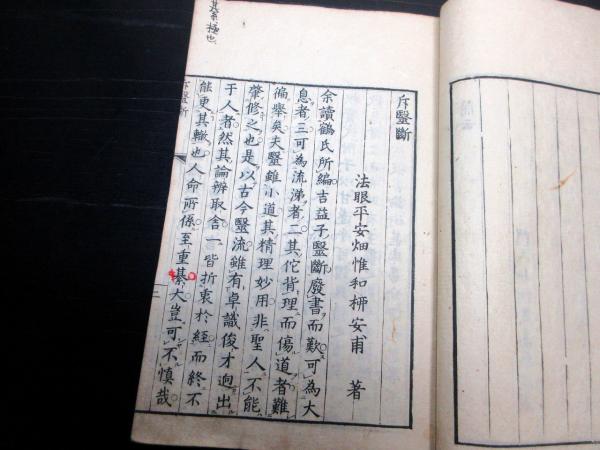 綦極也
斥醫斷
法眼平安畑惟和柳安甫 著
余讀鶴氏所編吉益子醫斷廢書而歎可為大
息者三可為流涕者二其佗背理而傷道者難
徧舉矣夫醫雖小道其精理妙用非聖人不能
肇修之也是以古今醫流雖有卓識俊才逈出
于人者然其論辨取舍一皆折衷於經而終不
能更其轍也人命所係至重綦大豈可不慎哉
斥醫斷